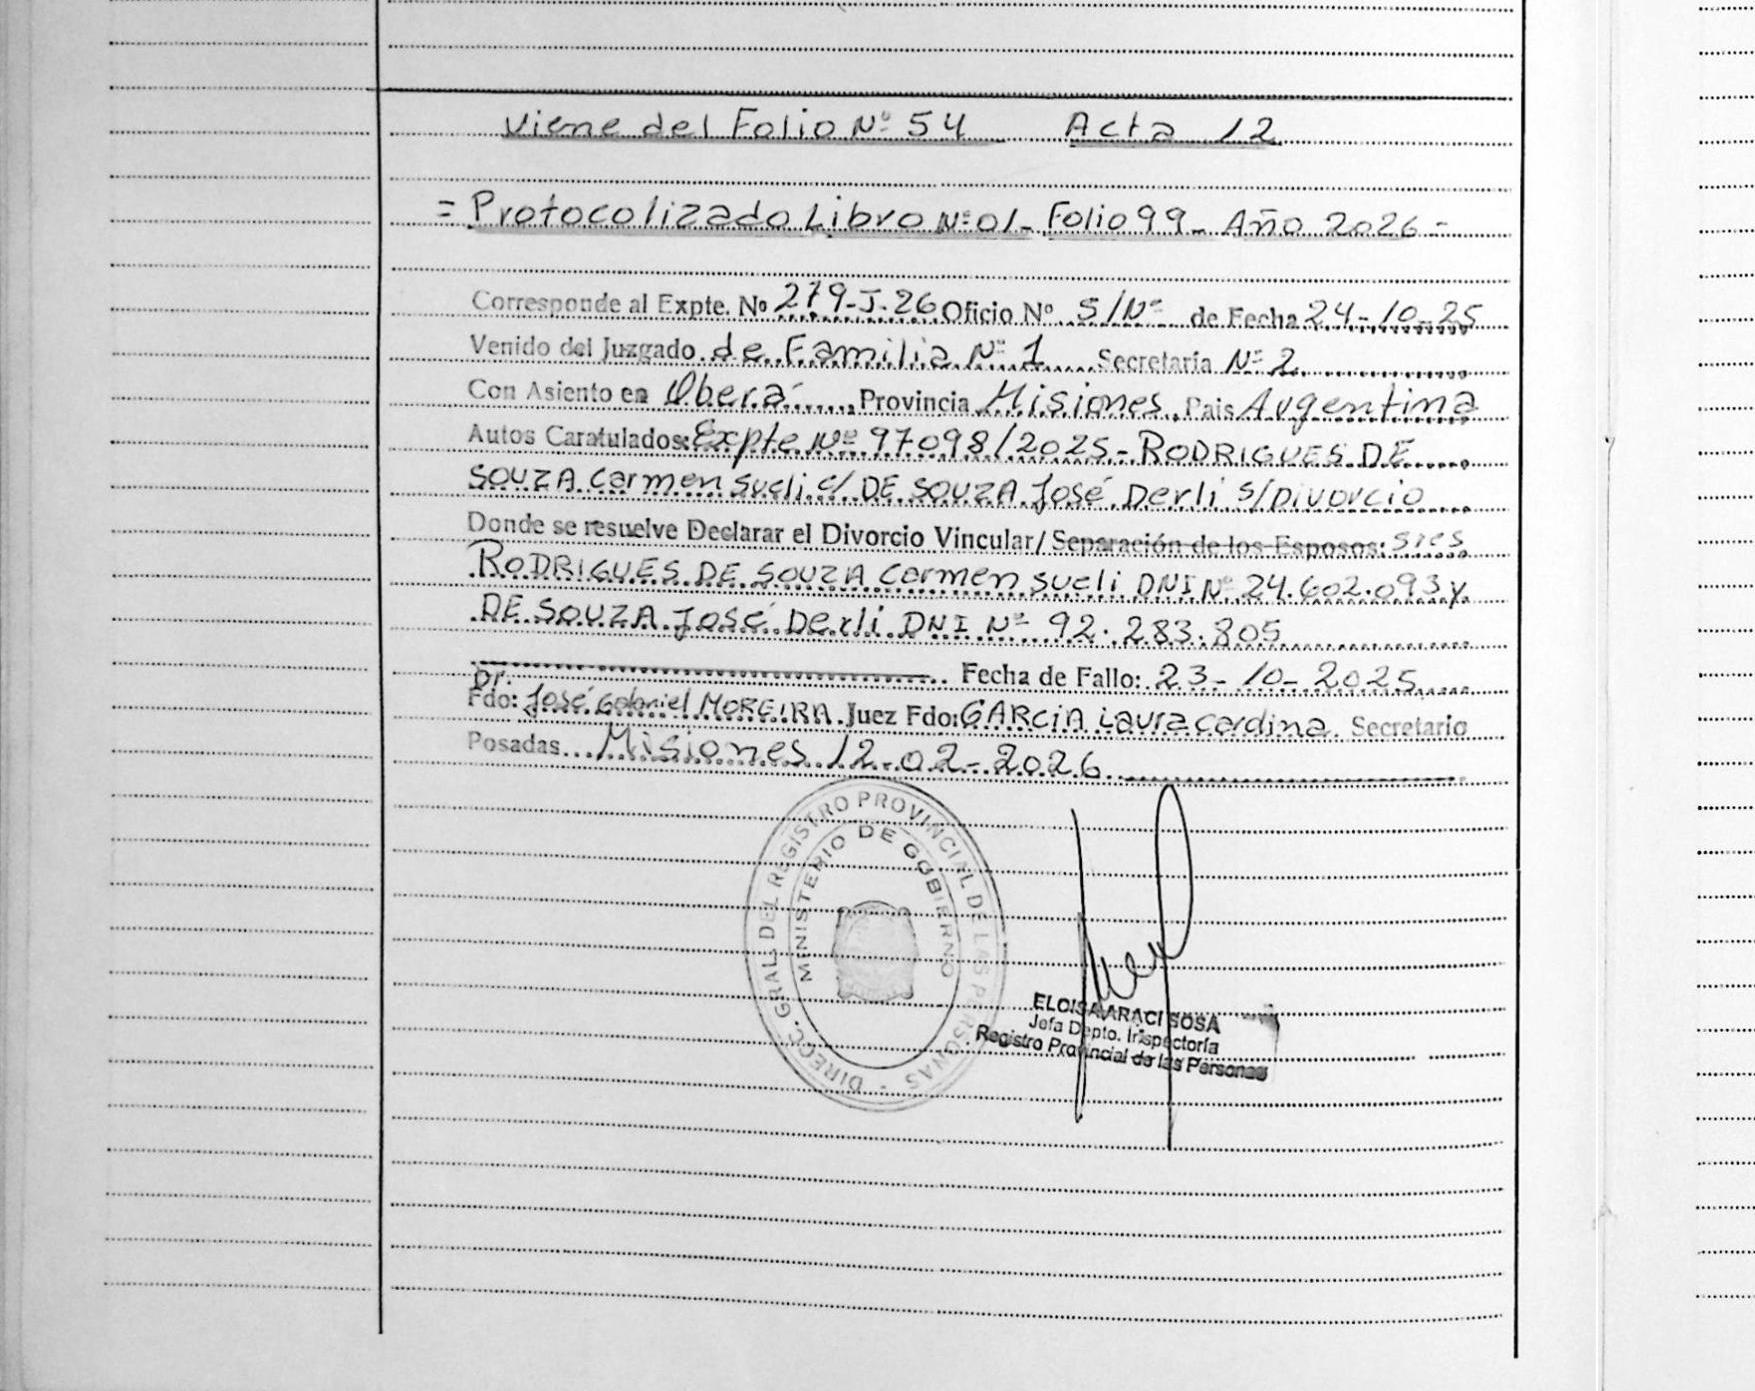 Viene del Folio Nº 54 Acta 12
= Protocolizado Libro Nº 01 - Folio 99 - Año 2026 -
Corresponde al Expte. Nº 279-J-26 Oficio Nº S/Nº de Fecha 24-10-25
Venido del Juzgado de Familia Nº 1 Secretaría Nº 2
Con Asiento en Oberá, Provincia Misiones, Pais Argentina
Autos Caratulados: Expte Nº 97098/2025 - RODRIGUES DE
SOUZA Carmen Sueli c/ DE SOUZA José Derli s/Divorcio
Donde se resuelve Declarar el Divorcio Vincular/ Separación de los Esposos:
RODRIGUES DE SOUZA Carmen Sueli DNI Nº 24.602.093 y
DE SOUZA José Derli DNI Nº 92.283.805
Fecha de Fallo: 23-10-2025
Dr.
Fdo: José Gabriel MOREIRA Juez Fdo: GARCIA Laura Carolina Secretario
Posadas... Misiones 12-02-2026
DIRECC. GRAL. DEL REGISTRO PROVINCIAL DE LAS PERSONAS -
MINISTERIO DE GOBIERNO
ELOISA ARACI SOSA
Jefa Depto. Inspectoría
Registro Provincial de las Personas